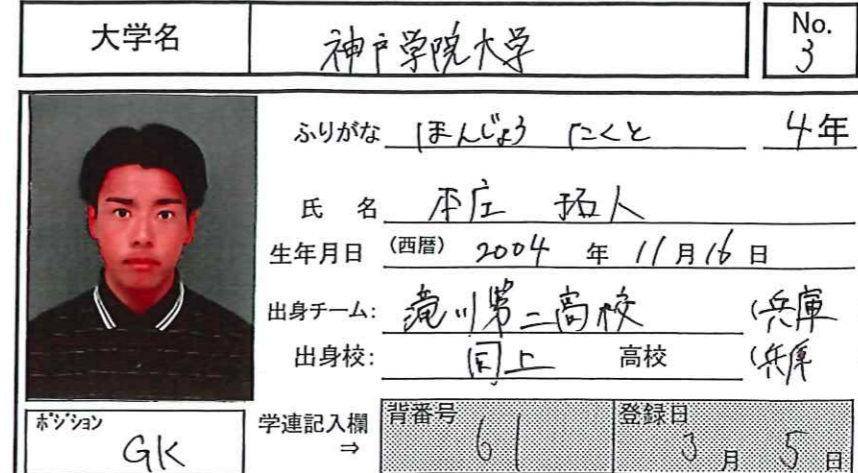 大学名 神戸学院大学 No. 3
ふりがな ほんじょう たくと 4年
氏 名 本庄 拓人
生年月日 (西暦) 2004 年 11月16日
出身チーム: 滝川第二高校 (兵庫
出身校: 同上 高校 (兵庫
ポジション GK
学連記入欄 ⇒ 背番号 61 登録日 3月 5日